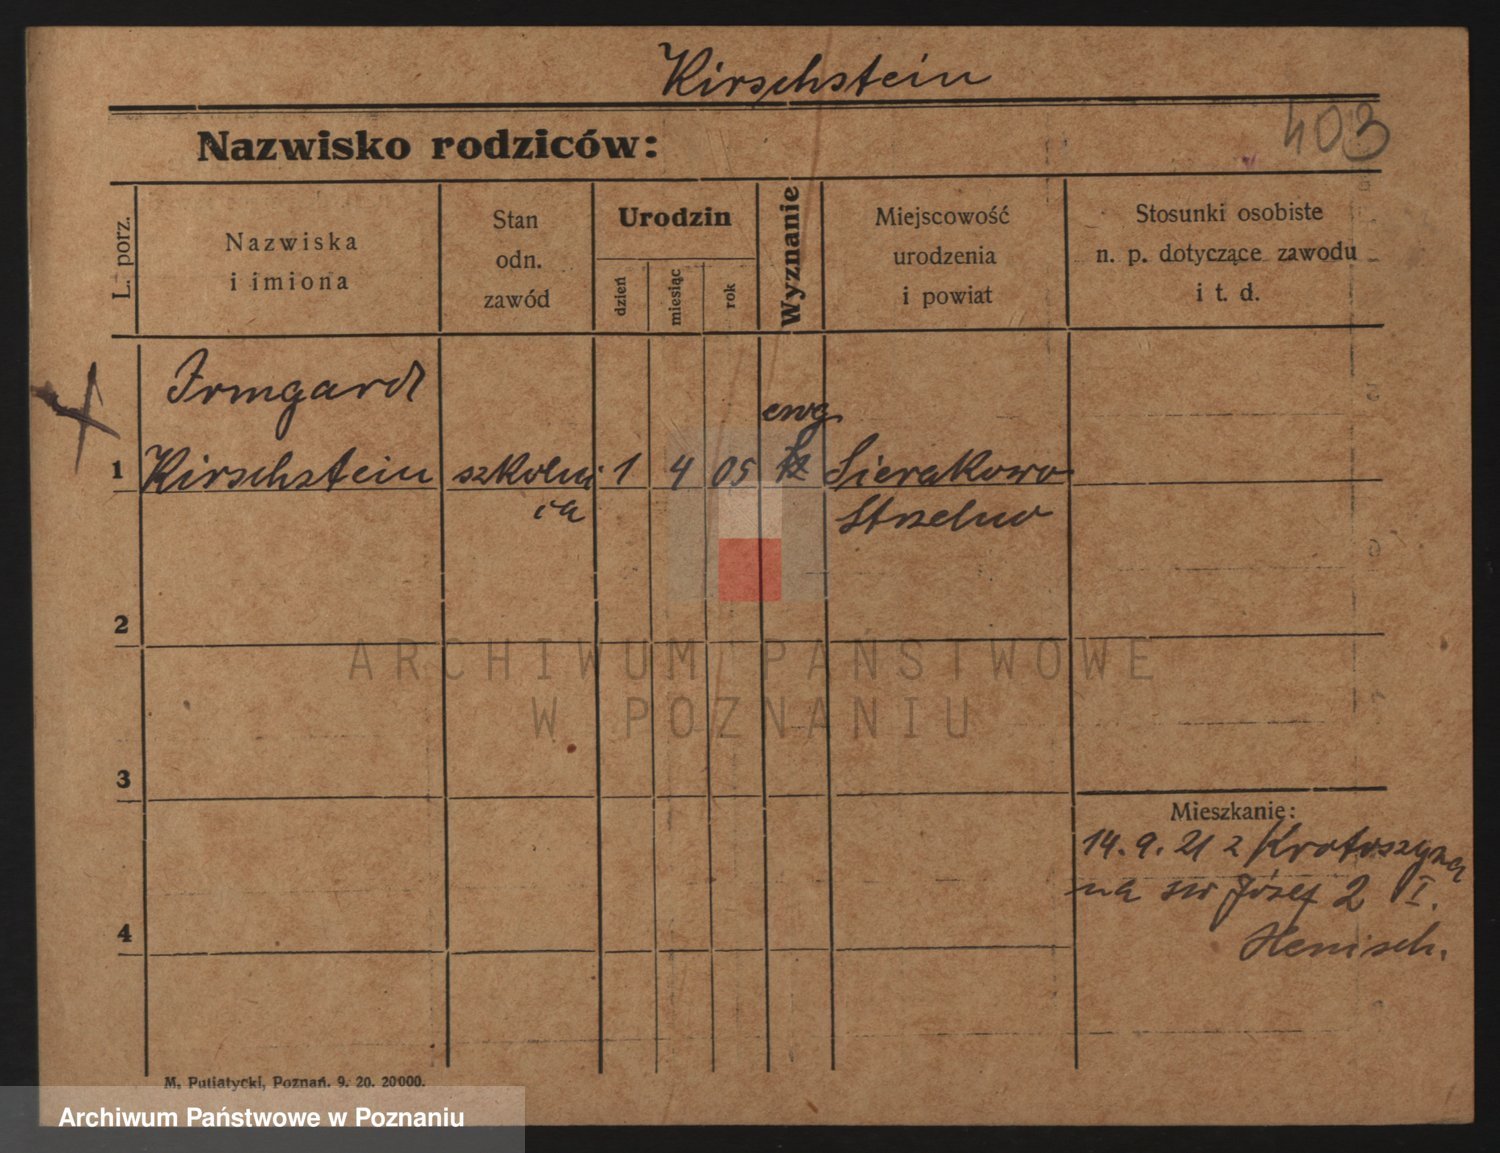 Kirschstein
Nazwisko rodziców:
403
L. porz.
Nazwiska
i imiona
Stan
odn.
zawód
Urodzin
dzień
miesiąc
rok
Wyznanie
Miejscowość
urodzenia
i powiat
Stosunki osobiste
n. p. dotyczące zawodu
i t. d.
Irmgard
ewg
1 Kirschstein szkolni 1 4 05 Sierakowo
ca Strzelno
2
3
4
Mieszkanie:
14. 9. 21 z Krotoszyna
na św Józef 2 I.
Henisch.
ARCHIWUM PAŃSTWOWE
W POZNANIU
M. Putiatycki, Poznań. 9. 20. 20000.
Archiwum Państwowe w Poznaniu